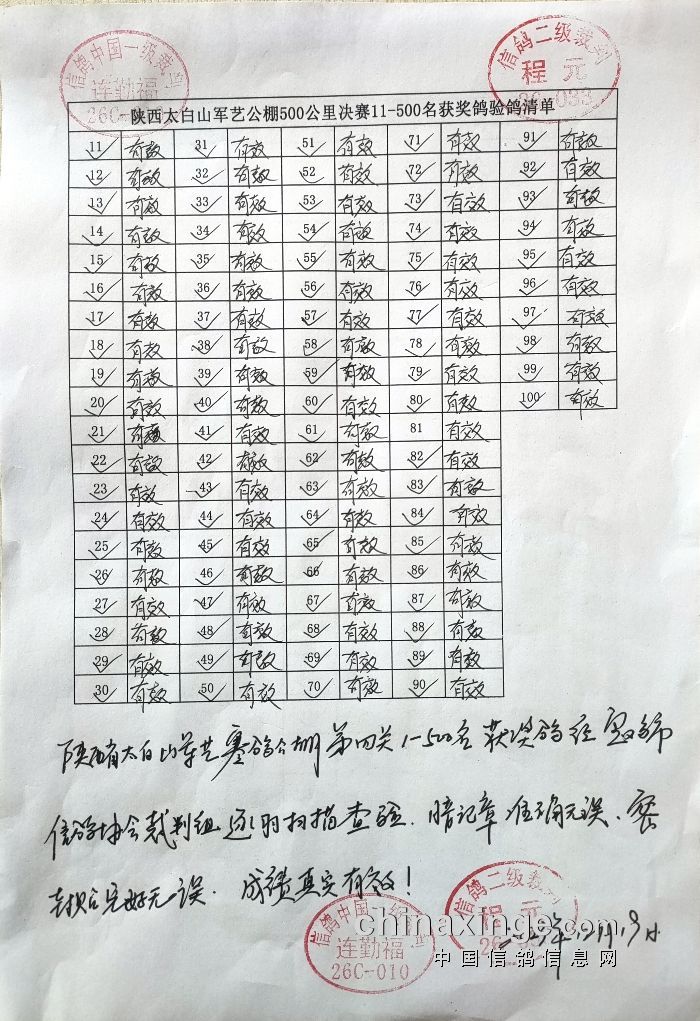 信鸽中国一级裁判
连勤福
26C-010
信鸽二级裁判
程元
26-033
陕西太白山军艺公棚500公里决赛11-500名获奖鸽验鸽清单
11 有效 31 有效 51 有效 71 有效 91 有效
12 有效 32 有效 52 有效 72 有效 92 有效
13 有效 33 有效 53 有效 73 有效 93 有效
14 有效 34 有效 54 有效 74 有效 94 有效
15 有效 35 有效 55 有效 75 有效 95 有效
16 有效 36 有效 56 有效 76 有效 96 有效
17 有效 37 有效 57 有效 77 有效 97 有效
18 有效 38 有效 58 有效 78 有效 98 有效
19 有效 39 有效 59 有效 79 有效 99 有效
20 有效 40 有效 60 有效 80 有效 100 有效
21 有效 41 有效 61 有效 81 有效
22 有效 42 有效 62 有效 82 有效
23 有效 43 有效 63 有效 83 有效
24 有效 44 有效 64 有效 84 有效
25 有效 45 有效 65 有效 85 有效
26 有效 46 有效 66 有效 86 有效
27 有效 47 有效 67 有效 87 有效
28 有效 48 有效 68 有效 88 有效
29 有效 49 有效 69 有效 89 有效
30 有效 50 有效 70 有效 90 有效
陕西省太白山军艺赛鸽公棚第四关1-500名获奖鸽经
信鸽协会裁判组逐羽扫描查验.暗记章准确无误.
完好无误.成绩真实有效!
信鸽中国一级裁判
连勤福
26C-010
信鸽二级裁判
程元
chinaxinge.com
中国信鸽信息网